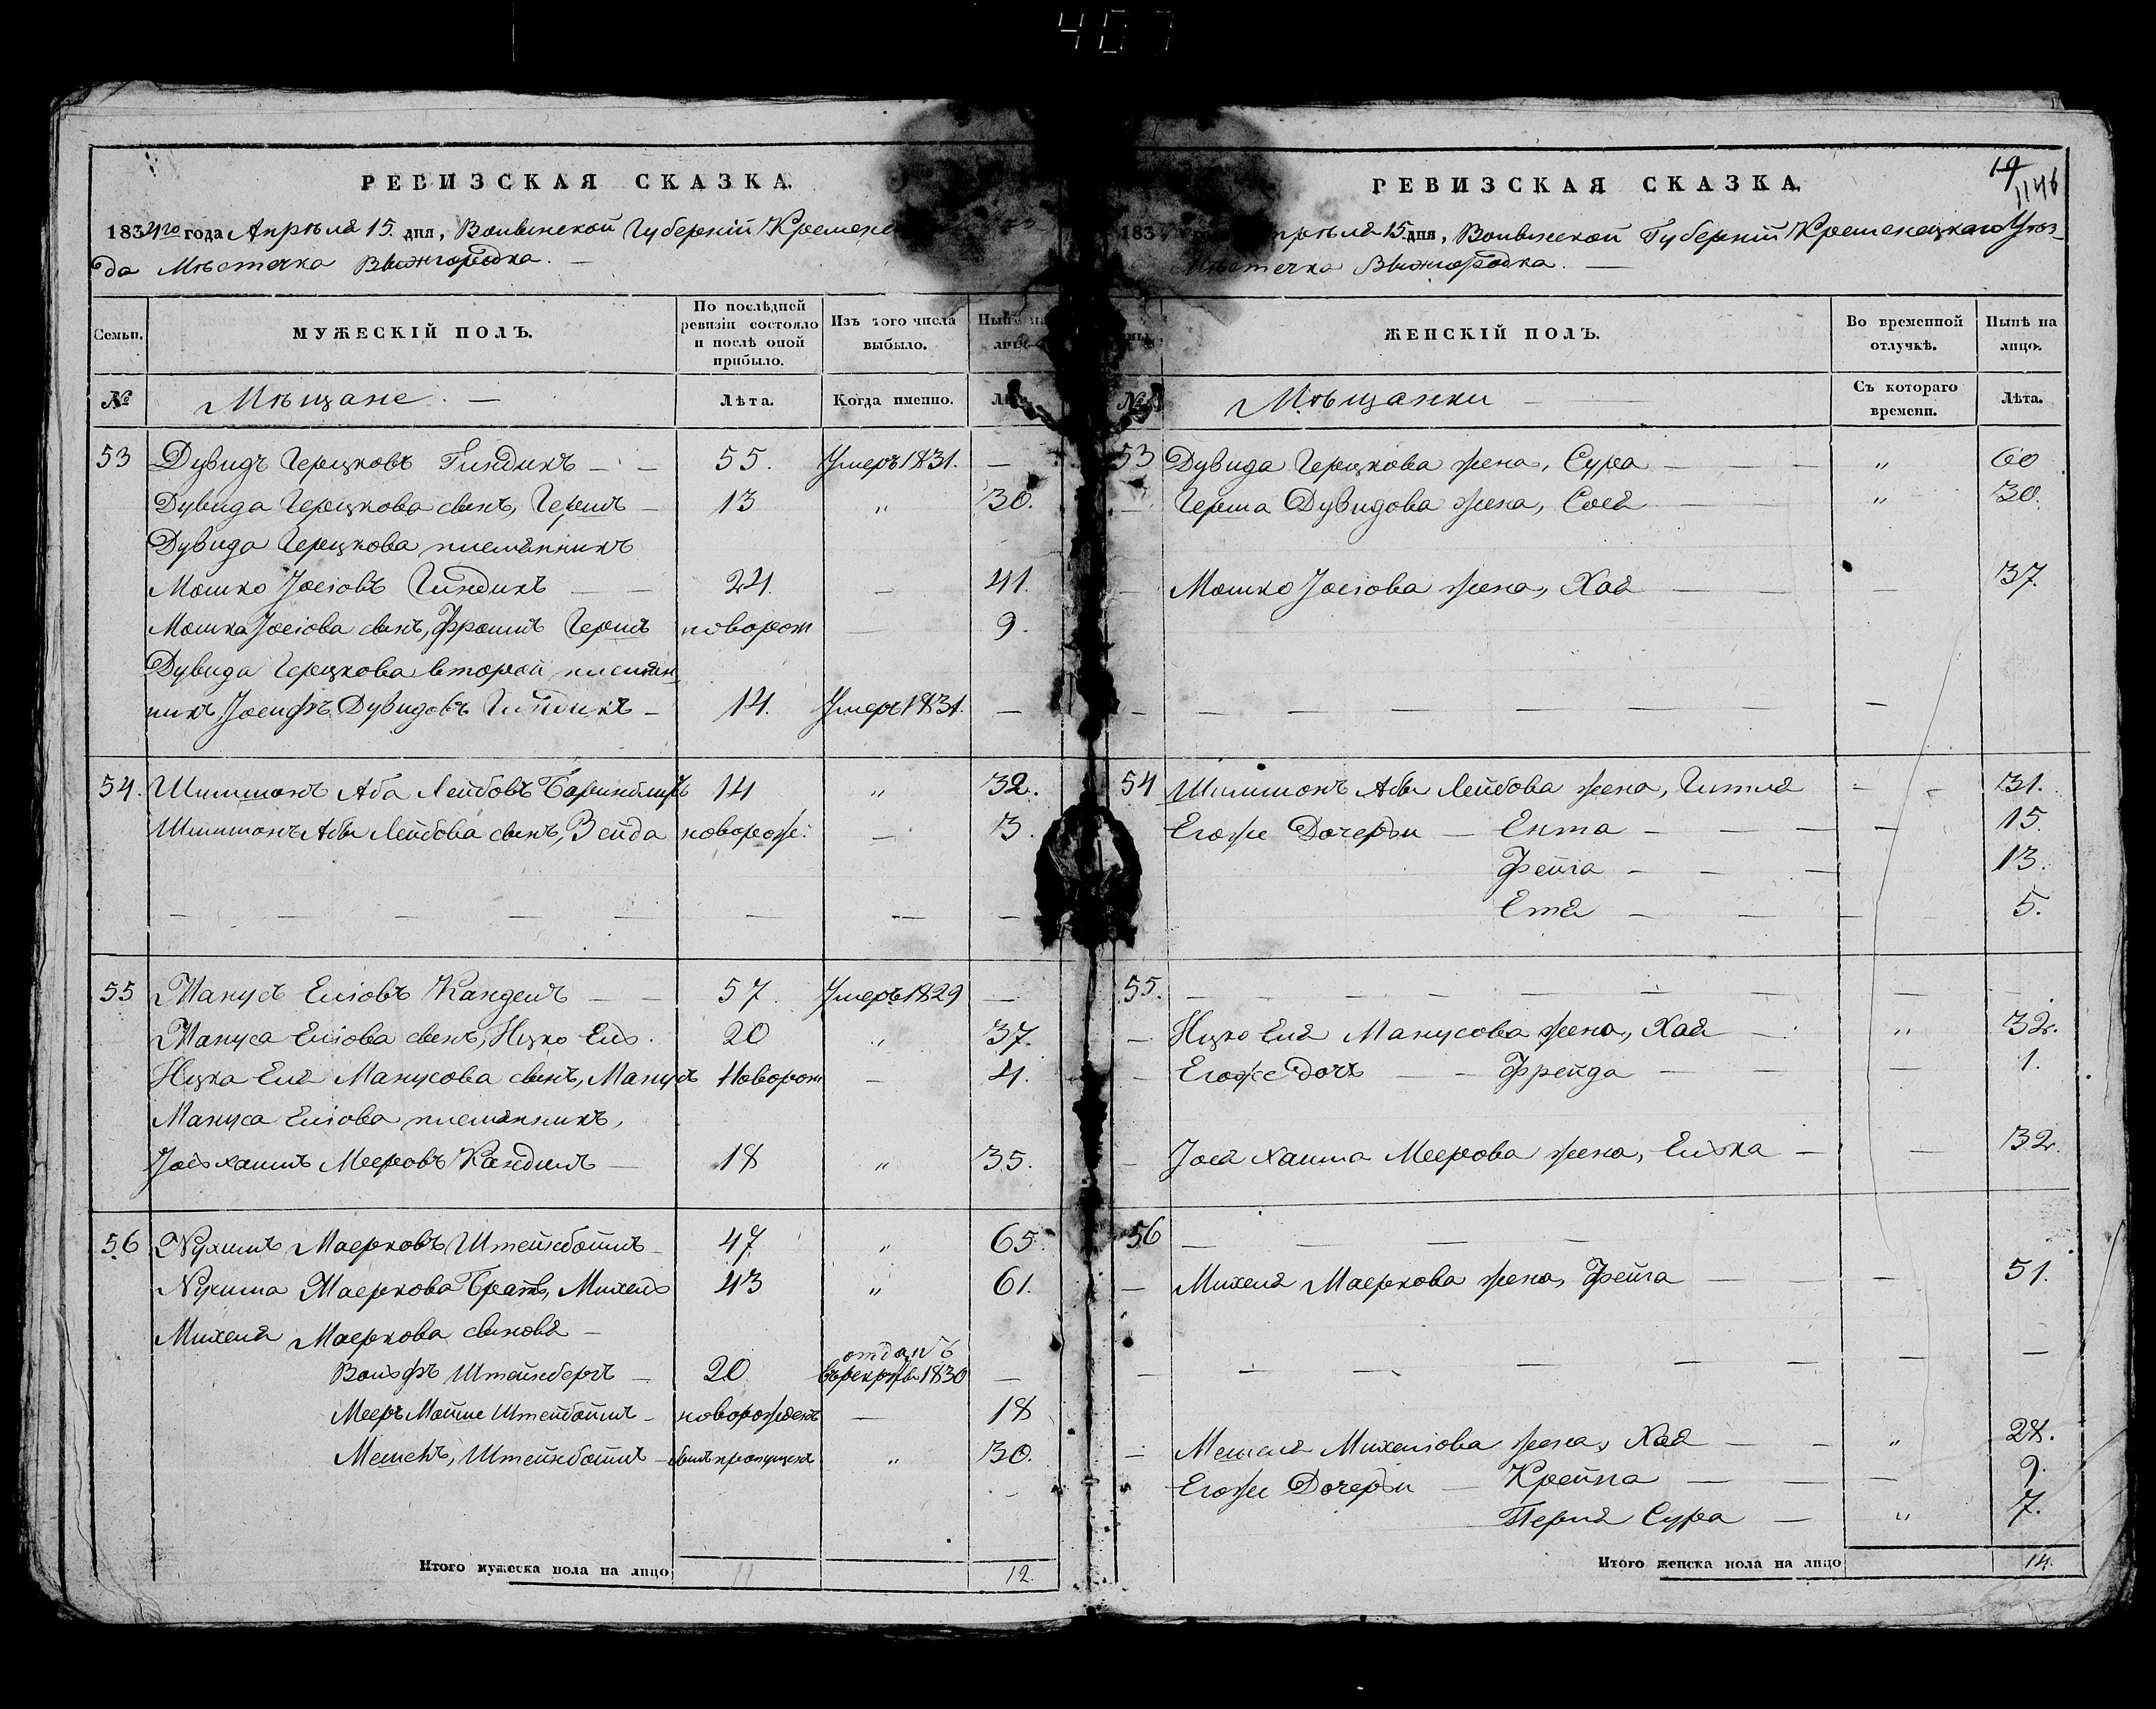 407
РЕВИЗСКАЯ СКАЗКА.
1834го года Апрѣля 15. дня, Волынской Губерніи
да Мѣстечка Вышгородка. —
Семьи.
МУЖЕСКІЙ ПОЛЪ.
По послѣдней ревизіи состояло и послѣ оной прибыло.
Изъ того числа выбыло.
Нынѣ на
№
Мѣщане. —
Лѣта.
Когда именно.
53 Дувидъ Герцковъ Гиндикъ — — 55. Умеръ 1831. —
Дувида Герцкова сынъ, Гершъ — 13 „ 30.
Дувида Герцкова племянникъ
Мошко Іосіовъ Гиндикъ — — 24. — 41.
Мошка Іосіова сынъ, Фроимъ Гершъ новорож — 9.
Дувида Герцкова второй племян
никъ, Іосифъ Дувидовъ Гиндикъ — 14. Умеръ 1831. —
54. Шлиіомонъ Аба Лейбовъ 14 „ 32.
Абы Лейбова сынъ, Зейда новорож. — 3.
— — — — — — — —
55 Манусъ Еліовъ Кандель — — 57. Умеръ 1829 —
Мануса Еліова сынъ, Ицко Ель. 20 „ 37.
Ицка Еля Манусова сынъ, Манусъ Новорож — 4.
Мануса Еліова племянникъ,
Мееровъ Кандель — 18 „ 35.
56 Нухимъ Маерковъ Штейнбоймъ — 47 „ 65.
Нухима Маеркова Братъ, Михель 43 „ 61.
Михеля Маеркова сыновья —
Вольфъ Штейнбергъ — 20 отданъ въ рекруты 1830 —
Мееръ Мойше Штейнбоймъ — новорожденъ — 18
Мешель, Штейнбоймъ — былъ пропущенъ „ 30.
Итого мужеска пола на лицо 11 12.
19
1146
РЕВИЗСКАЯ СКАЗКА.
183 15 дня, Волынской Губерніи Кременецкаго Уѣз-
Мѣстечка Вышгородка. —
ЖЕНСКІЙ ПОЛЪ.
Во временной отлучкѣ.
Нынѣ на лицо.
№
Мѣщанки —
Съ котораго времени.
Лѣта.
53 Дувида Герцкова жена, Сура — — — „ 60
— Герша Дувидова жена, Сося — — „ 30.
— Мошко Іосіова жена, Хая — — — 37.
— — — — — — — —
54 Абы Лейбова жена, Гитля — — 31.
Егоже Дочерьи — Ента — — — — 15.
Фейга — — — 13.
Етя — — — 5.
55. — — — — — — —
— Ицко Еля Манусова жена, Хая — „ 32.
— Егоже дочь — — Фрейда — — — 1.
— Хаима Меерова жена, Елька — — 32.
56 — — — —
— Михеля Маеркова жена, Фейга — — 51.
— — — — — — — —
— Мешеля Михеліова жена, Хая — — „ 28.
— Егоже Дочерьи — Крейна — — — 9.
Перля Сура — „ 7.
Итого женска пола на лицо 14.